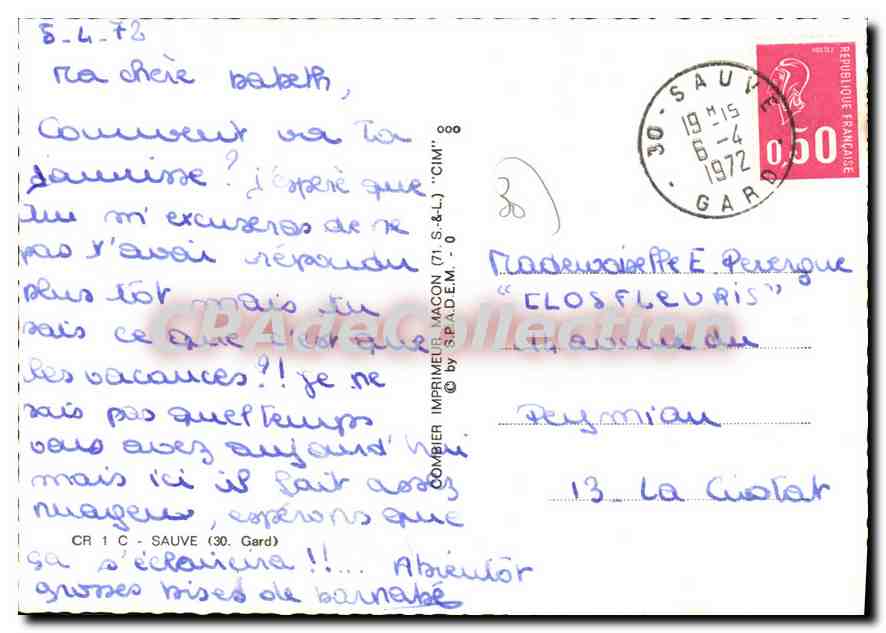 5-4-72
Ma chère Babeth,
Comment va ta
jaunisse? j'espère que
tu m'excuseras de ne
pas t'avoir répondu
plus tôt mais tu
sais ce que c'est que
les vacances?!! je ne
sais pas quel temps
vous avez aujourd'hui
mais ici il fait assez
nuageux, espérons que
CR 1 C - SAUVE (30. Gard)
ça s'éclaircira!!... A bientôt
grosses bises de barnabé
COMBIER IMPRIMEUR MACON (71. S.-&-L.) "CIM"
© by S.P.A.D.E.M. - 0
30
30 - SAUVE
19 H 15
6 - 4
1972
GARD
POSTES
RÉPUBLIQUE FRANÇAISE
0,50
Mademoiselle E. Perergue
"CLOS FLEURIS"
Avenue du
Peymian
13 - La Ciotat
CPAdeCollection